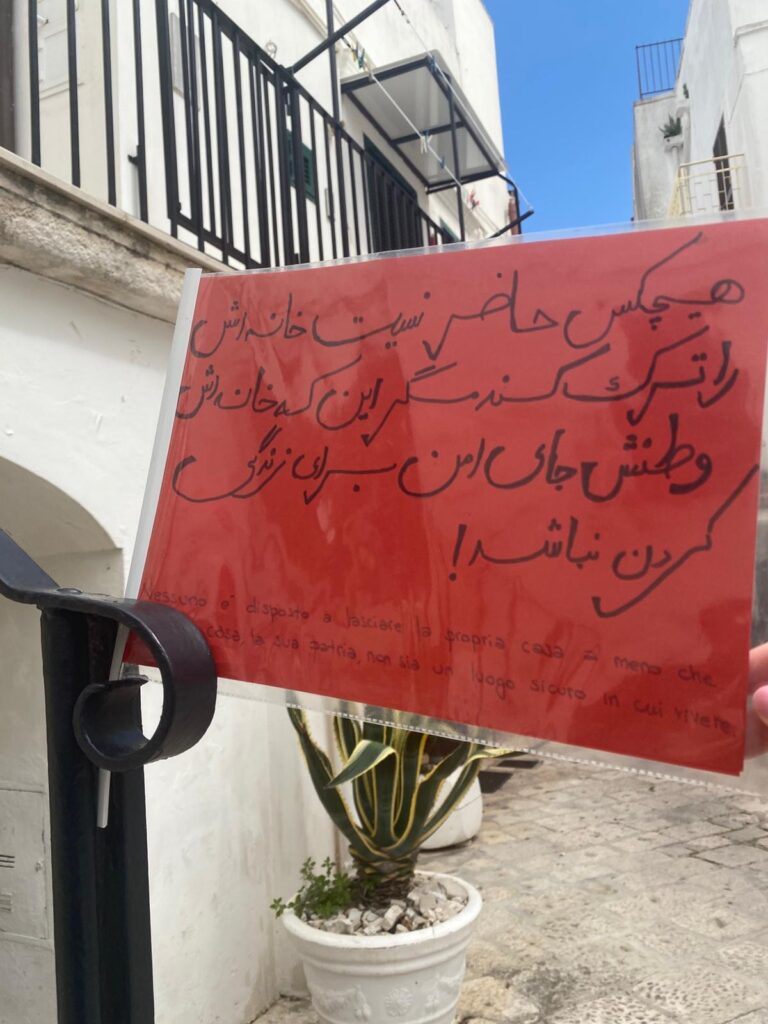 هیچکس حاضر نیست خانه اش
را ترک کند مگر این که خانه اش
وطنش جای امن برای زندگی
کردن نباشد!
Nessuno e' disposto a lasciare la propria casa a meno che
casa, la sua patria, non sia un luogo sicuro in cui vivere.